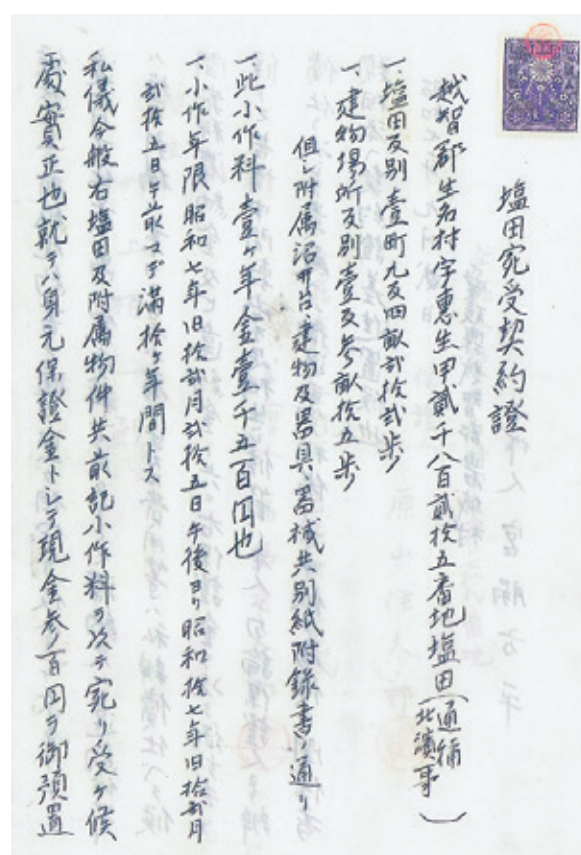 塩田宛受契約證
越智郡生名村字恵生甲貳千八百貳拾五番地塩田(通稱北濱事)
一、塩田反別壹町九反四畝貳拾弐歩
一、建物場所反別壹反参畝拾五歩
但シ附属沼井台建物及器具器械共別紙附録書ノ通リ
一、此小作料壹ヶ年金壹千五百円也
一、小作年限昭和七年旧拾弐月弐拾五日午後ヨリ昭和拾七年旧拾弐月
弐拾五日午前マデ満拾ヶ年間トス
私儀今般右塩田及附属物件共前記小作料ヲ以テ宛リ受ケ候
處實正也就テハ身元保證金トシテ現金参百円ヲ御預置